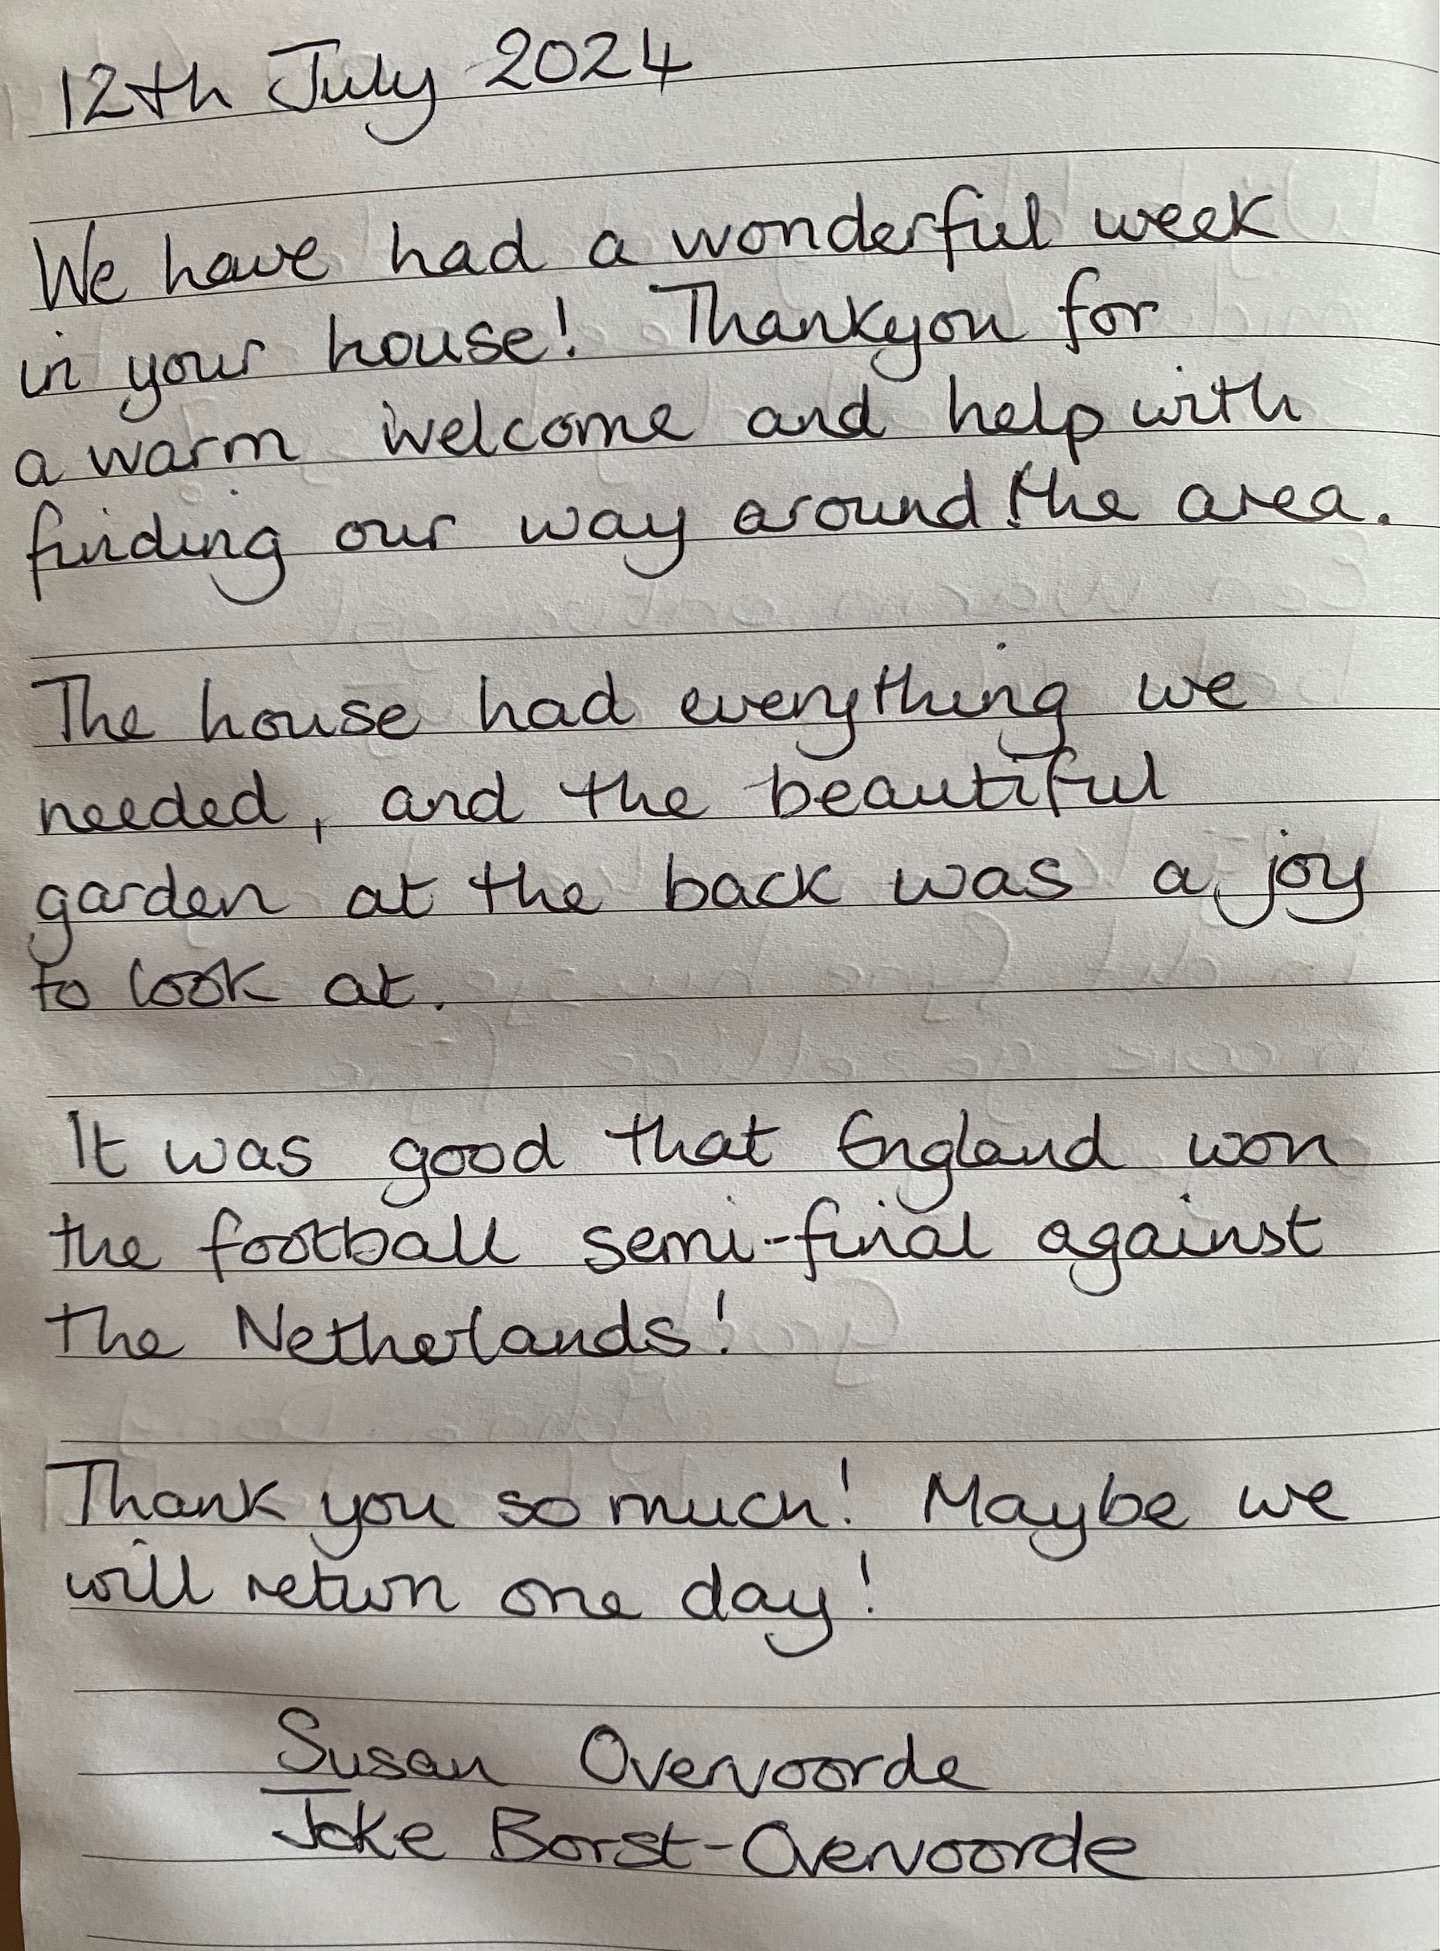 12th July 2024
We have had a wonderful week
in your house! Thankyou for
a warm welcome and help with
finding our way around the area.
The house had everything we
needed, and the beautiful
garden at the back was a joy
to look at.
It was good that England won
the football semi-final against
the Netherlands!
Thank you so much! Maybe we
will return one day!
Susan Overvoorde
Joke Borst-Overvoorde